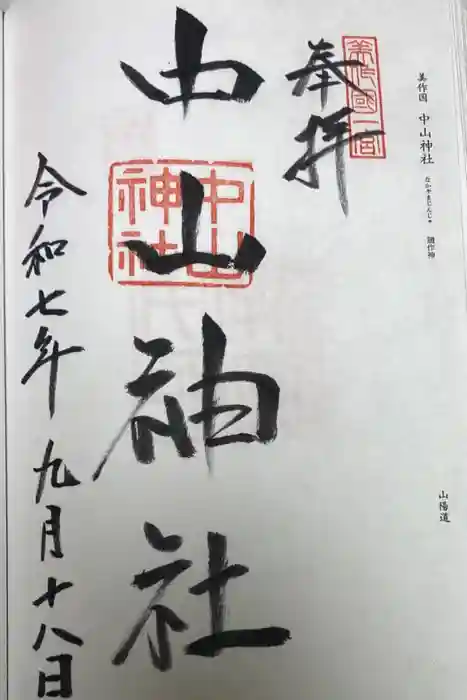 美作国 中山神社 なかやまじんじゃ 鏡作神
山陽道
奉拝
美作國一宮
中山神社
中山神社
令和七年 九月十八日